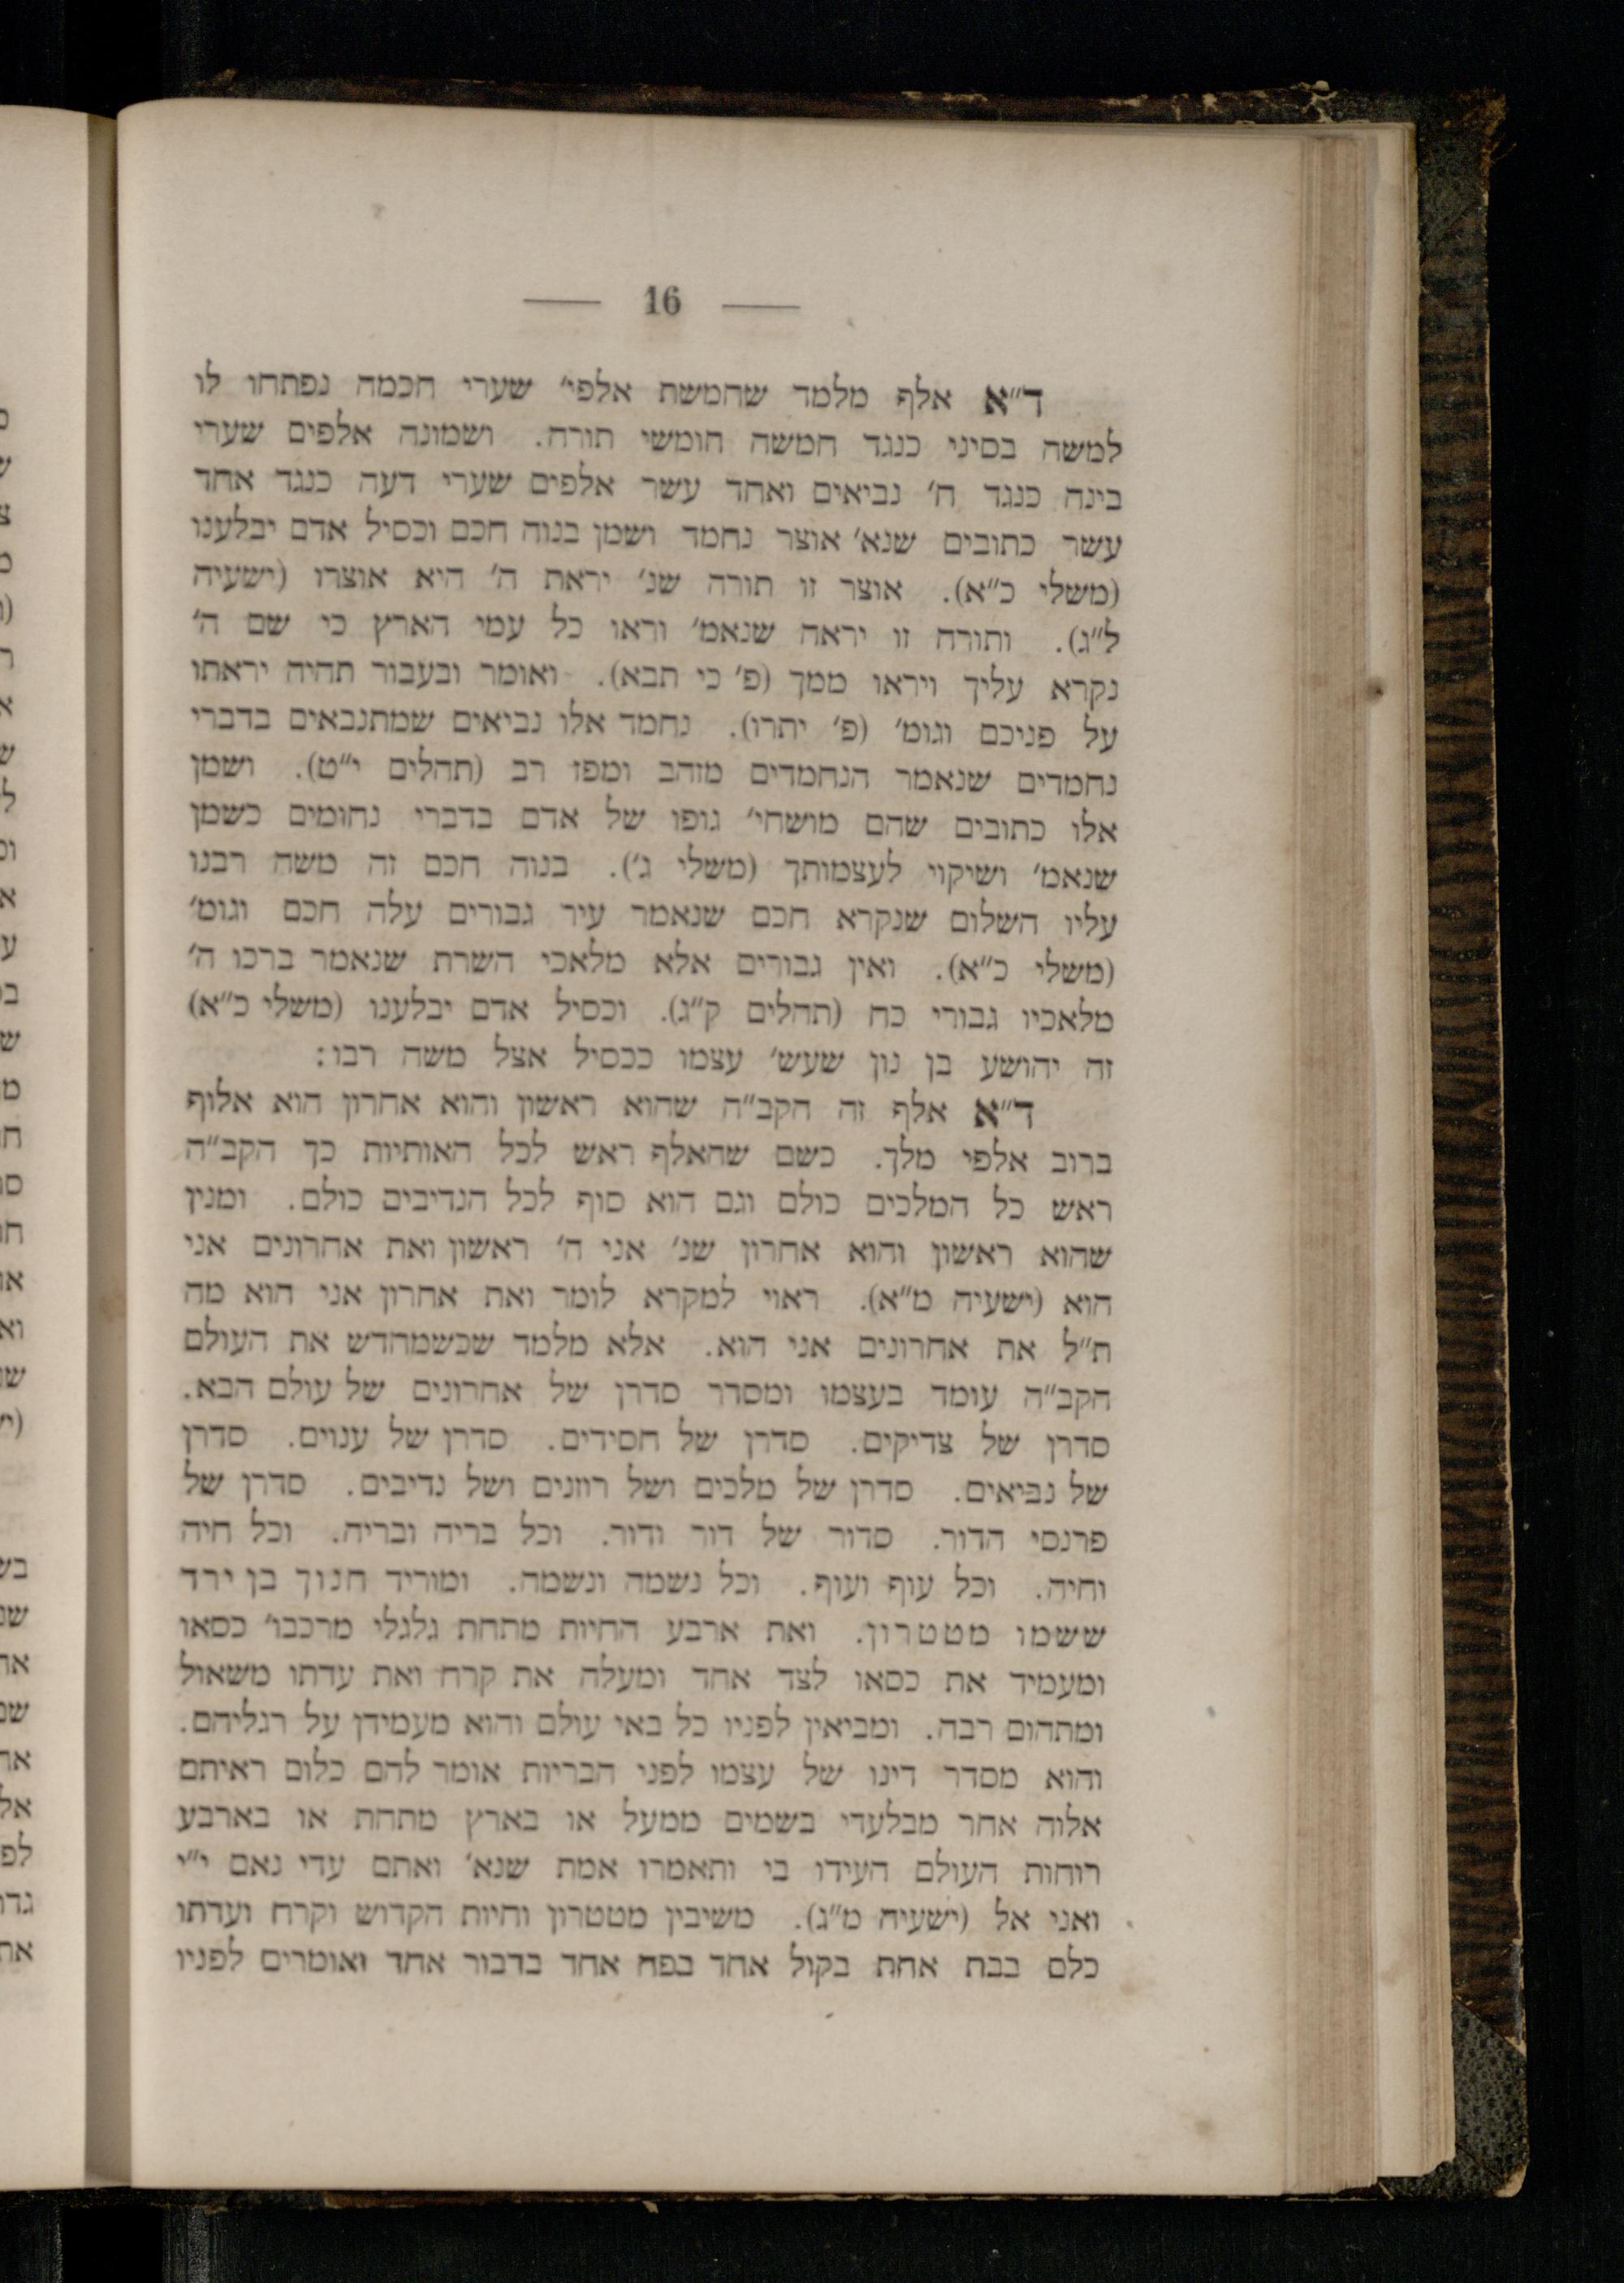 — 16 —
ד״א אלף מלמד שחמשת אלפי׳ שערי חכמה נפתחו לו
למשה בסיני כנגד חמשה חומשי תורה. ושמונה אלפים שערי
בינה כנגד ח׳ נביאים ואחד עשר אלפים שערי דעה כנגד אחד
עשר כתובים שנא׳ אוצר נחמד ושמן בנוה חכם וכסיל אדם יבלענו
(משלי כ״א). אוצר זו תורה שנ׳ יראת ה׳ היא אוצרו (ישעיה
ל״ג). ותורה זו יראה שנאמ׳ וראו כל עמי הארץ כי שם ה׳
נקרא עליך ויראו ממך (פ׳ כי תבא). ואומר ובעבור תהיה יראתו
על פניכם וגומ׳ (פ׳ יתרו). נחמד אלו נביאים שמתנבאים בדברי
נחמדים שנאמר הנחמדים מזהב ומפז רב (תהלים י״ט). ושמן
אלו כתובים שהם מושחי׳ גופו של אדם בדברי נחומים כשמן
שנאמ׳ ושיקוי לעצמותך (משלי ג׳). בנוה חכם זה משה רבנו
עליו השלום שנקרא חכם שנאמר עיר גבורים עלה חכם וגומ׳
(משלי כ״א). ואין גבורים אלא מלאכי השרת שנאמר ברכו ה׳
מלאכיו גבורי כח (תהלים ק״ג). וכסיל אדם יבלענו (משלי כ״א)
זה יהושע בן נון שעש׳ עצמו ככסיל אצל משה רבו:
ד״א אלף זה הקב״ה שהוא ראשון והוא אחרון הוא אלוף
ברוב אלפי מלך. כשם שהאלף ראש לכל האותיות כך הקב״ה
ראש כל המלכים כולם וגם הוא סוף לכל הנדיבים כולם. ומנין
שהוא ראשון והוא אחרון שנ׳ אני ה׳ ראשון ואת אחרונים אני
הוא (ישעיה מ״א). ראוי למקרא לומר ואת אחרון אני הוא מה
ת״ל את אחרונים אני הוא. אלא מלמד שכשמחדש את העולם
הקב״ה עומד בעצמו ומסדר סדרן של אחרונים של עולם הבא.
סדרן של צדיקים. סדרן של חסידים. סדרן של ענוים. סדרן
של נביאים. סדרן של מלכים ושל רוזנים ושל נדיבים. סדרן של
פרנסי הדור. סדור של דור ודור. וכל בריה ובריה. וכל חיה
וחיה. וכל עוף ועוף. וכל נשמה ונשמה. ומוריד חנוך בן ירד
ששמו מטטרון. ואת ארבע החיות מתחת גלגלי מרכבו׳ כסאו
ומעמיד את כסאו לצד אחד ומעלה את קרח ואת עדתו משאול
ומתהום רבה. ומביאין לפניו כל באי עולם והוא מעמידן על רגליהם.
והוא מסדר דינו של עצמו לפני הבריות אומר להם כלום ראיתם
אלוה אחר מבלעדי בשמים ממעל או בארץ מתחת או בארבע
רוחות העולם העידו בי ותאמרו אמת שנא׳ ואתם עדי נאם י״י
ואני אל (ישעיה מ״ג). משיבין מטטרון וחיות הקדוש וקרח ועדתו
כלם בבת אחת בקול אחד בפה אחד בדבור אחד ואומרים לפניו